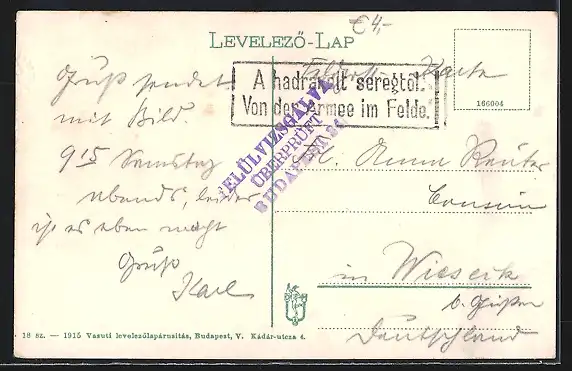 €4,-
LEVELEZŐ-LAP
Feldpost-Karte
A hadrakelt seregtől.
Von der Armee im Felde.
166004
FELÜLVIZSGÁLVA
ÜBERPRÜFT
BUDAPEST
Gruß sendet
mit Bild.
9 15 Samstag
abends, leider
ist es eben nacht
Gruß
Karl
Anna Reuter
in Wieseck
b. Gießen
Deutschland
18 sz. — 1915 Vasuti levelezőlapárusitás, Budapest, V. Kádár-utcza 4.